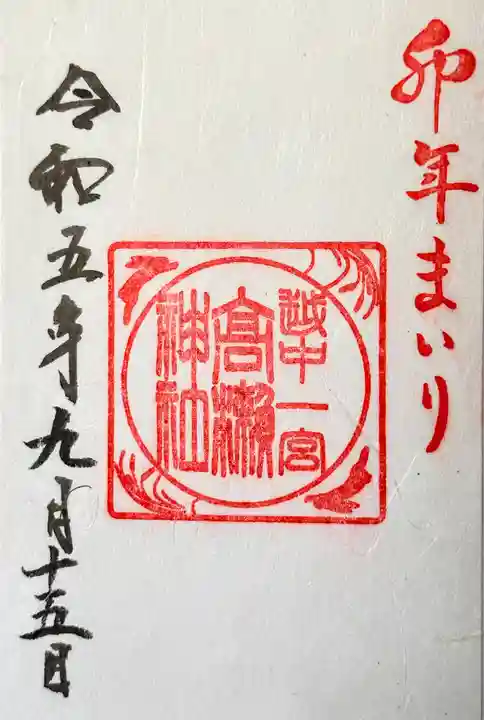 卯年まいり
越中一宮
高瀬
神社
令和五年九月十五日